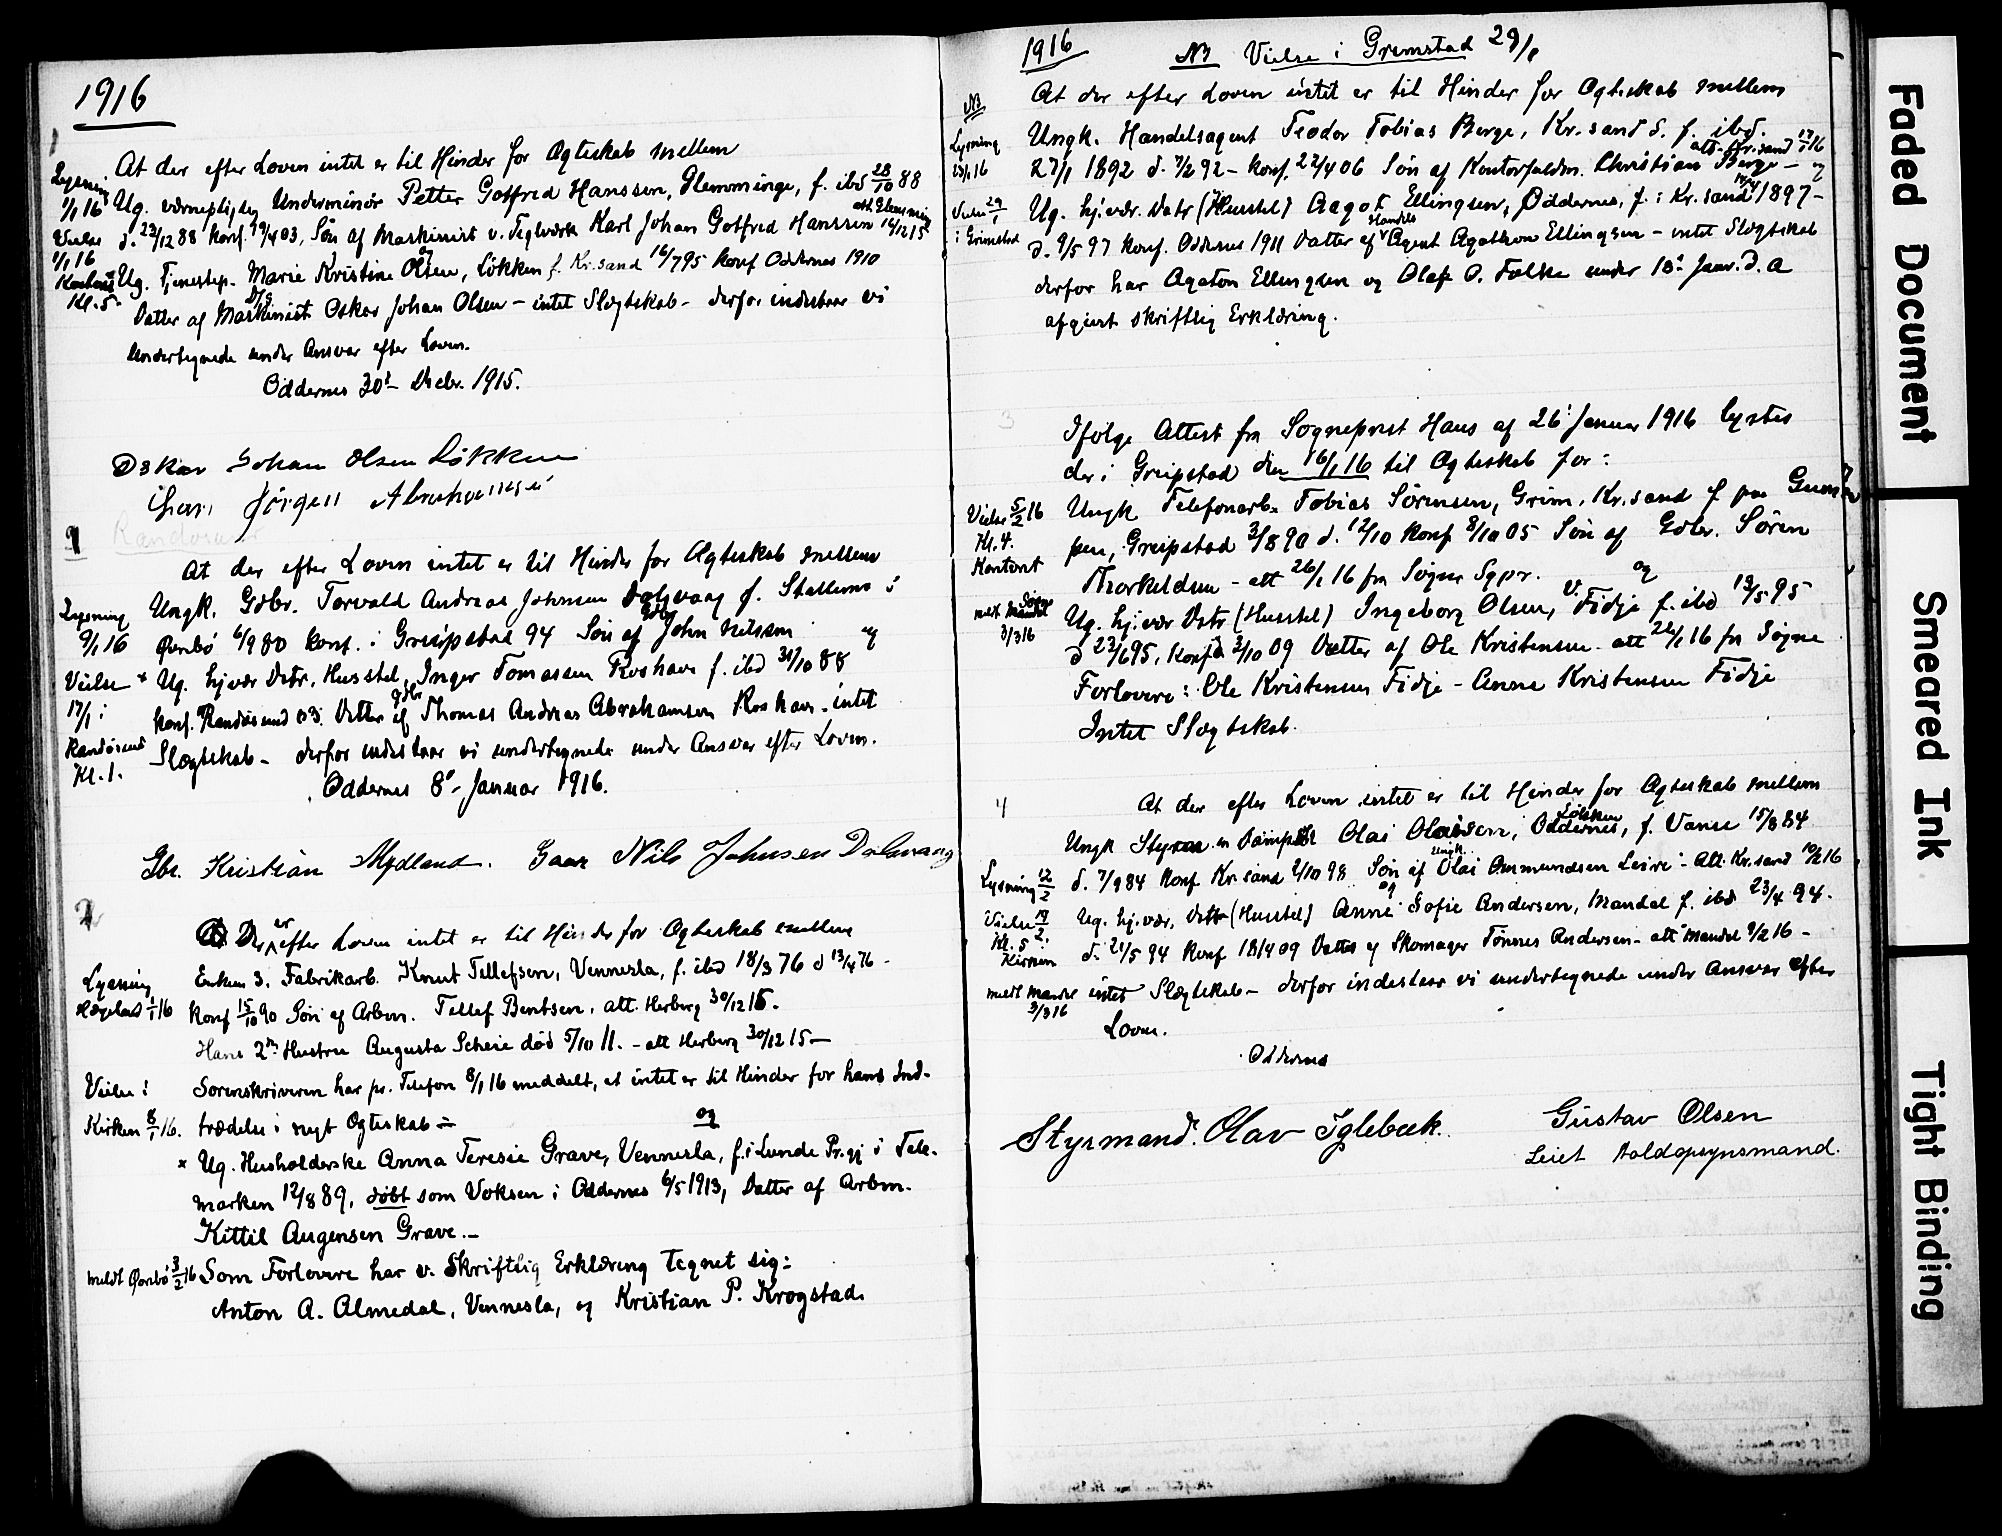 1916
At der efter Loven intet er til Hinder for Ægteskab mellem
Lysning 1/1 16
Vielse 1/1 16
Kontoret Kl. 5.
Ug. værnepligtig Underminør Petter Gotfred Hanssen, Flemminge, f. ibd 28/10 88
d. 23/12 88 konf. 19/4 03, Søn af Maskinist v. Teglværk Karl Johan Gotfred Hanssen 14/12 15
og
Ug. Tjenestep. Marie Kristine Olsen, Løkken f. Kr.sand 16/7 95 konf Oddernes 1910
Datter af Maskinist Oskar Johan Olsen – intet Slægtskab – derfor indestaar vi
undertegnede under Ansvar efter Loven.
Oddernes 30' Decbr. 1915.
Oskar Johan Olsen Løkken
Jørgen Abrahamsen
1
Randøsund
At der efter Loven intet er til Hinder for Ægteskab mellem
Lysning 9/1 16
Vielse 17/1 i Randøsund Kl. 1.
Ungk. Gdbr. Torvald Andreas Johnsen Dalsvaag f. Stallemo i
Øvrebø 6/9 80 konf. i Greipstad 94 Søn af Gdbr John Nilssen og
* Ug. hj.vær Dtr. Husstel, Inger Tomassen Roshavn f. ibd 31/10 88
konf. Randøsund 03. Datter af Gdbr Thomas Andreas Abrahamsen Roshavn – intet
Slægtskab – derfor indestaar vi undertegnede under Ansvar efter Loven.
Oddernes 8' Januar 1916.
Gbr. Kristian Mydland. Gaar Nils Johnsen Dalsvaag
2
Der er efter Loven intet er til Hinder for Ægteskab mellem
Lysning Hægeland 1/1 16
Enkem. 3. Fabrikarb. Knut Tellefsen, Vennesla, f. ibd 18/3 76 d 13/4 76 –
konf 15/10 90 Søn af Arbm. Tellef Bentsen, att. Herberg 30/12 15.
Hans 2n Hustru Augusta Scheie død 5/10 11. – att Herberg 30/12 15 –
Vielse i Kirken 8/1 16.
Sorenskriveren har pr. Telefon 8/1 16 meddelt, at intet er til Hinder for hans Ind-
trædelse i nyt Ægteskab –
og
* Ug. Husholderske Anna Teresie Grave, Vennesla, f. i Lunde Pr.gj i Tele-
marken 12/8 89, døbt som Voksen i Oddernes 6/5 1913, Datter af Arbm.
Kittil Augensen Grave. –
meldt Øvrebø 3/2 16
Som Forlovere har v. Skriftlig Erklæring tegnet sig:
Anton A. Almedal, Vennesla, og Kristian P. Krogstad.
1916
NB Vielse i Grimstad 29/1
NB
At der efter Loven intet er til Hinder for Ægteskab mellem
Lysning 23/1 16
Vielse 29/1 i Grimstad
Ungk. Handelsagent Teodor Tobias Berge, Kr.sand S. f. ibd.
att. Kr.sand 17/1 16
27/1 1892 d. 7/2 92 – konf. 22/4 06 Søn af Kontorfuldm. Christian Berge – og
Ug. hj.vær. Datr (Husstel) Aagot Ellingsen, Oddernes, f. i Kr.sand 14/4 1897 –
d. 9/5 97 konf. Oddernes 1911 Datter af Handels Agent Agathon Ellingsen – intet Slægtskab
derfor har Agaton Ellingsen og Olaf O. Falke under 13' Janr. d. A
afgivet skriftlig Erklæring.
3
Ifølge Attest fra Sogneprest Haus af 26' Januar 1916 lystes
der i Greipstad den 16/1 16 til Ægteskab for:
Vielse 5/2 16
Kl. 4.
Kontoret
meldt Mandal Søgne 3/3 16
Ungk Telefonarb. Tobias Sørensen, Grim, Kr.sand f paa
pen, Greipstad 3/8 90 d. 12/10 konf 8/10 05 Søn af Gdbr. Søren
Thorkildsen – att 26/1 16 fra Søgne Sgpr. og
Ug. hj.vær Dtr (Husstel) Ingeborg Olsen, V. Fidje f. ibd 13/5 95
d 23/6 95, Konf 3/10 09 Datter af Ole Kristensen – att 26/1 16 fra Søgne
Forlovere: Ole Kristensen Fidje – Anne Kristensen Fidje
Intet Slægtskab.
4
At der efter Loven intet er til Hinder for Ægteskab mellem
Løkken
Ungk Styrm. en Dampsk Olai Olaisen, Oddernes, f. Vanse 15/8 84
Lysning 13/2
Vielse 19/2. Kl. 5 i Kirken
meldt Mandal 3/3 16
d. 7/9 84 konf Kr.sand 2/10 98 Søn af Ungk. Olai Ommundsen Leire – att. Kr.sand 10/2 16
og
Ug. hj.vær. Dtr (Husstel) Anne Sofie Andersen, Mandal f. ibd 23/4 94.
d. 21/5 94 konf 18/4 09 Datter af Skomager Tønnes Andersen – att Mandal 9/2 16 –
intet Slægtskab – derfor indestaar vi undertegnede under Ansvar efter
Loven.
Oddernes
Styrmand. Olav Iglebæk. Gustav Olsen
Leiet Toldopsynsmand.
Faded Document
Smeared Ink
Tight Binding